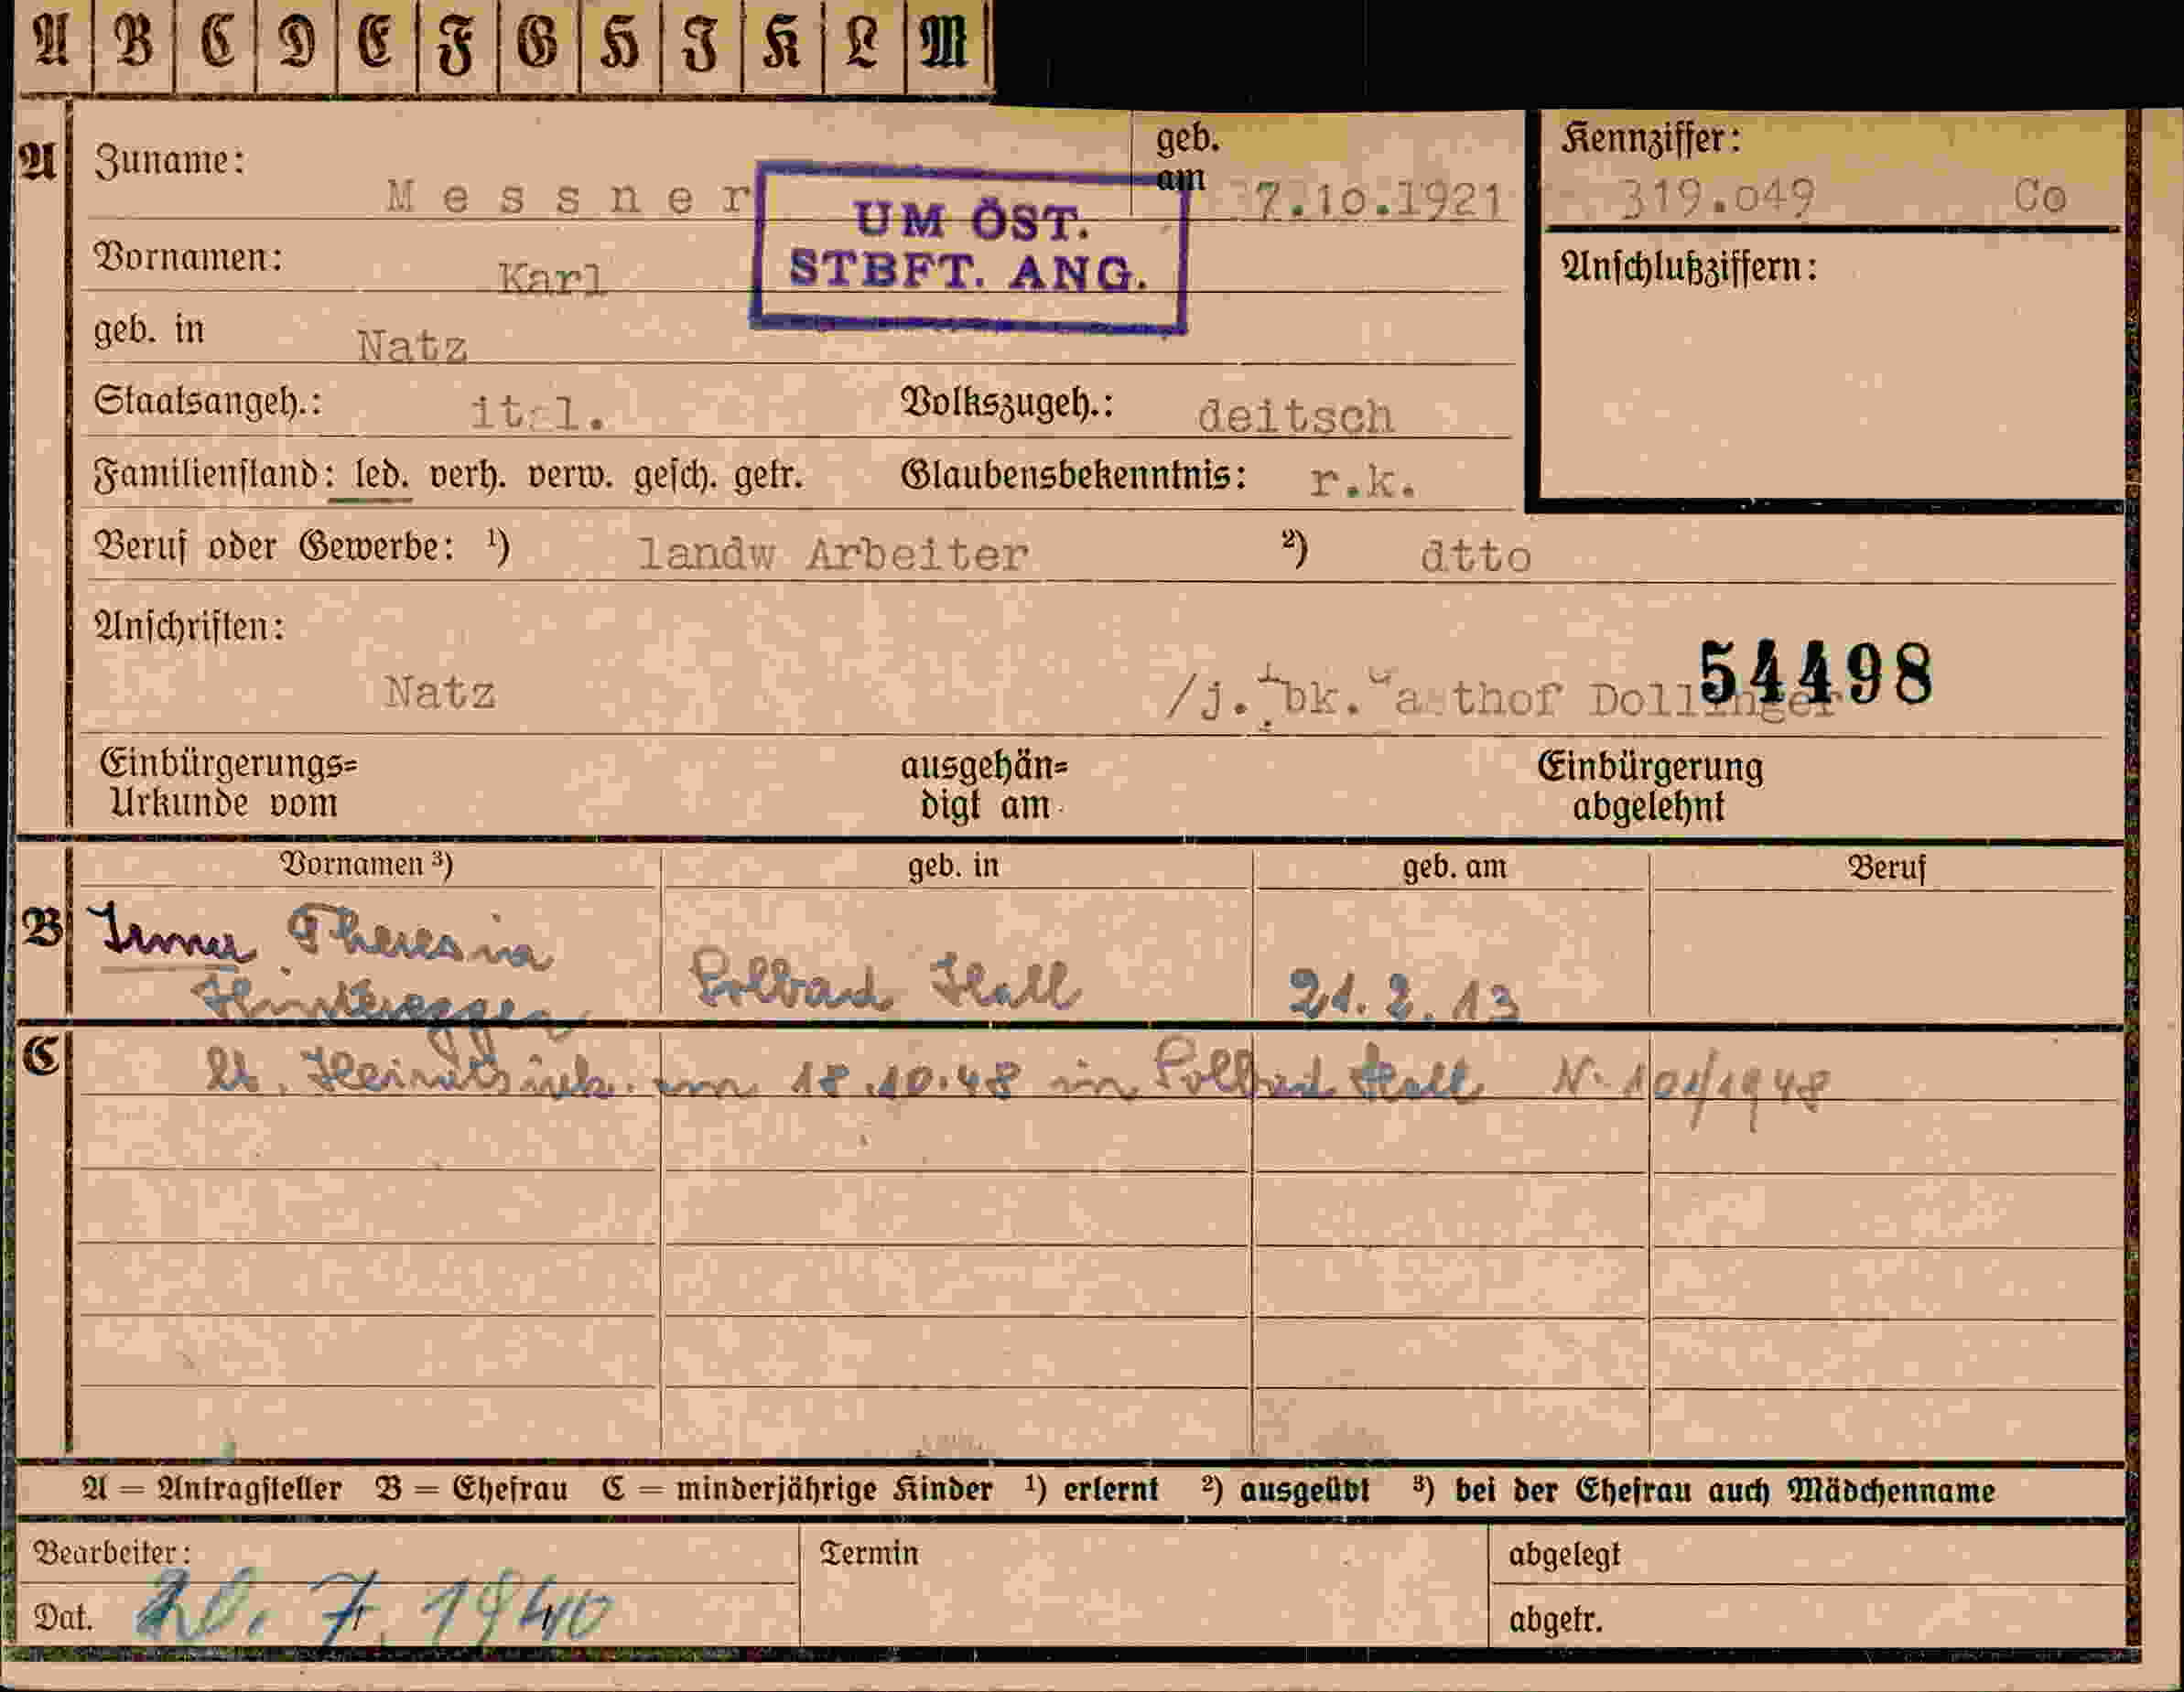 A B C D E F G H I K L M
A Zuname: Messner geb. am 7.10.1921 Kennziffer: 319.049 Co
UM ÖST.
STBFT. ANG.
Vornamen: Karl Anschlußziffern:
geb. in Natz
Staatsangeh.: ital. Volkszugeh.: deitsch
Familienstand: led. verh. verw. gesch. getr. Glaubensbekenntnis: r.k.
Beruf oder Gewerbe: ¹) landw Arbeiter ²) dtto
Anschriften:
54498
Natz /j. Ibk. Gasthof Dollinger
Einbürgerungs= ausgehän= Einbürgerung
Urkunde vom digt am abgelehnt
Vornamen ³) geb. in geb. am Beruf
B Irma Theresia
Hinteregger Solbad Hall 21.2.13
C lt. Heiratsurk. vom 18.10.48 in Solbad Hall N. 101/1948
A = Antragsteller B = Ehefrau C = minderjährige Kinder ¹) erlernt ²) ausgeübt ³) bei der Ehefrau auch Mädchenname
Bearbeiter: Termin abgelegt
Dat. 20. 7. 1940 abgetr.